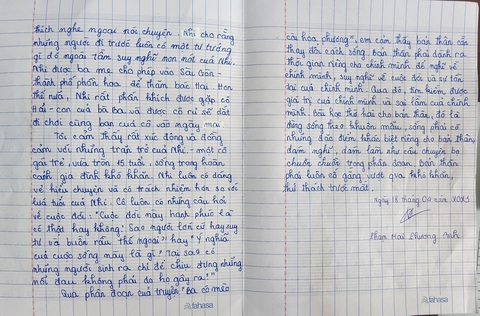 thích nghe ngoại nói chuyện. Nhi cho rằng
những người đi trước luôn có một tư tưởng
gì đó ngoài tầm suy nghĩ non nớt của Nhi.
Nhi được ba mẹ cho phép vào Sài Gòn -
thành phố phồn hoa để thăm bác Hai. Hơn
thế nữa, Nhi rất phấn khích được gặp cô
Hoà - con của bà ba và được cô rủ sẽ dắt
đi chơi cùng bạn của cô vào ngày mai
Tôi cảm thấy rất xúc động và đồng
cảm với những trăn trở của Nhi - một cô
gái trẻ, vừa tròn 15 tuổi, sống trong hoàn
cảnh gia đình khó khăn. Nhi luôn có dáng
vẻ hiểu chuyện và có trách nhiệm hơn so với
lứa tuổi của Nhi. Cô luôn có những câu hỏi
về cuộc đời: "Cuộc đời này hạnh phúc là
có thật hay không? Sao người lớn cứ hay suy
tư và buồn rầu thế ngoại?" hay "Ý nghĩa
của cuộc sống này là gì? Tại sao có
những người sinh ra chỉ để chịu đựng những
nỗi đau không phải do họ gây ra?"
Qua phân đoạn của truyện "Ba cô mèo
fahasa
của hoa phượng", em cảm thấy bản thân cần
thay đổi cách sống. Bản thân phải dành ra
thời gian riêng cho chính mình để nghĩ về
chính mình, suy nghĩ về cuộc đời và sự tồn
tại của chính mình. Qua đó, tìm kiếm được
giá trị của chính mình và sai lầm của chính
mình. Bài học thứ hai cho bản thân, đó là
đừng sống theo khuôn mẫu, sống phải có
những đặc điểm khác biệt riêng cho bản thân,
dám nghĩ, dám làm như câu chuyện ba
chuồn chuồn trong phân đoạn. Bản thân
phải luôn cố gắng vượt qua khó khăn,
thử thách trước mắt.
Ngày 18 tháng 04 năm 2025
Phạm Mai Phương Anh
fahasa